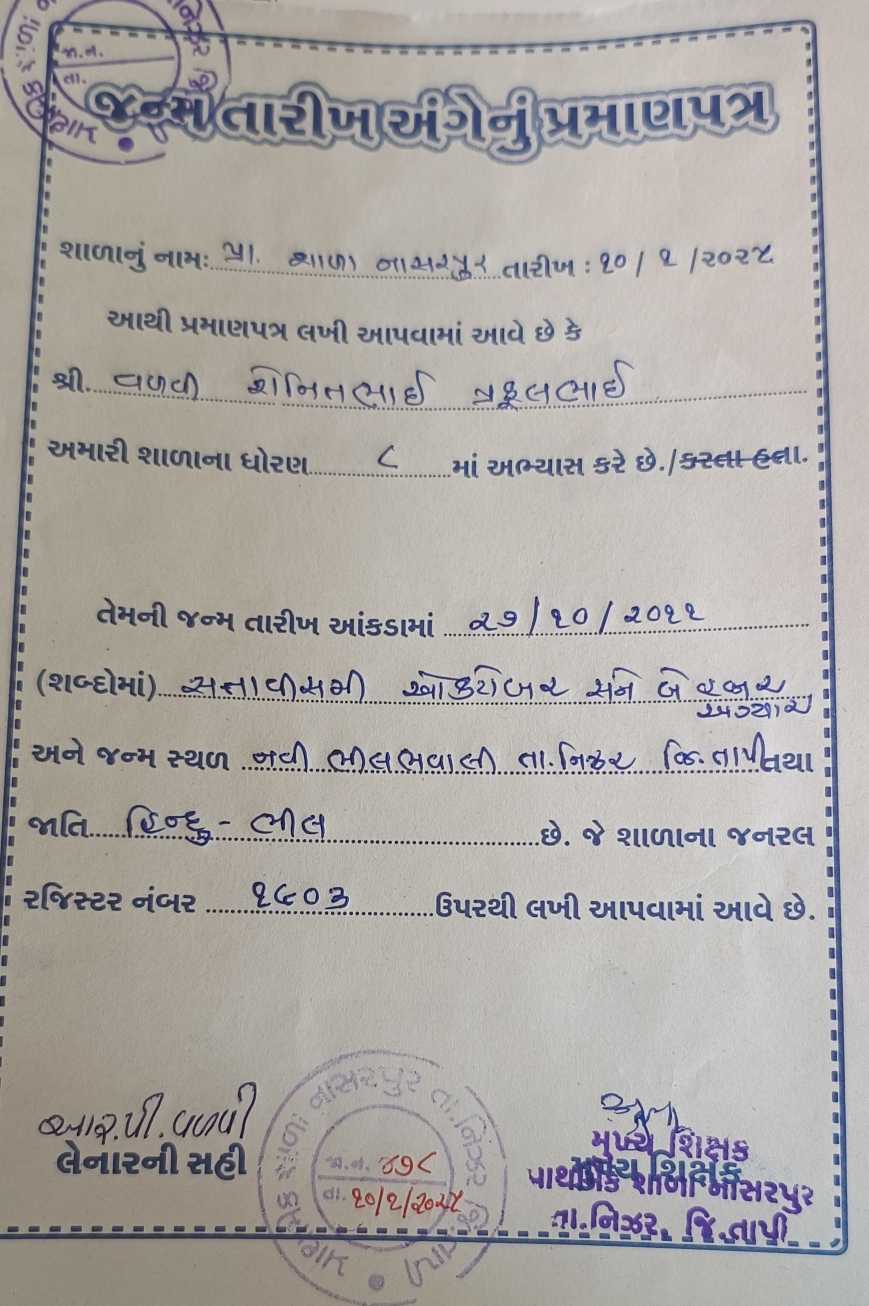 જા.ન.
તા.
જન્મ તારીખ અંગેનું પ્રમાણપત્ર
શાળાનું નામ: પ્રા. શાળા નાસરપુર તારીખ : ૧૦/૧/૨૦૨૪
આથી પ્રમાણપત્ર લખી આપવામાં આવે છે કે
શ્રી. વળવી રોનિતભાઈ પ્રફૂલભાઈ
અમારી શાળાના ધોરણ ૮ માં અભ્યાસ કરે છે./કરતા હતા.
તેમની જન્મ તારીખ આંકડામાં ૨૭/૧૦/૨૦૧૧
(શબ્દોમાં) સત્તાવીસમી ઓક્ટોબર સને બે હજાર
અગ્યાર
અને જન્મ સ્થળ નવી ભીલભવાલી તા.નિઝર જિ.તાપી તથા
જાતિ હિન્દુ - ભીલ છે. જે શાળાના જનરલ
રજિસ્ટર નંબર ૧૯૦૩ ઉપરથી લખી આપવામાં આવે છે.
આર.પી.વળવી
લેનારની સહી
શાળા નાસરપુર તા.નિઝર જિ. તાપી
જા.ન. ૪૭૮
તા. ૧૦/૧/૨૦૨૪
મુખ્ય શિક્ષક
મુખ્ય શિક્ષક
પ્રાથમિક શાળા નાસરપુર
તા.નિઝર, જિ.તાપી